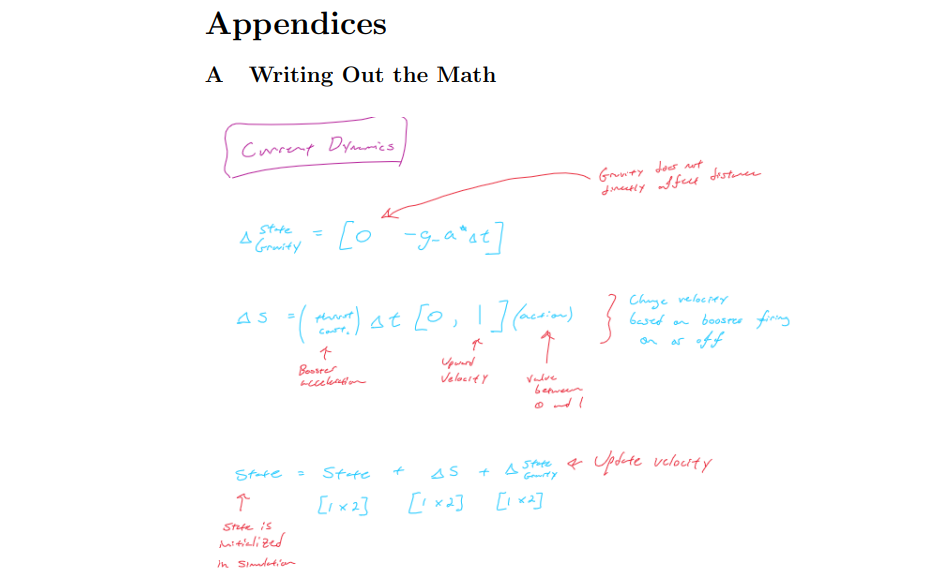 Appendices
A Writing Out the Math
Current Dynamics
Gravity does not
directly affect distance
Δ State Gravity = [0 -g_a*Δt]
ΔS = (thrust const.) Δt [0, 1] (action)
} Change velocity
based on booster firing
on or off
Booster
acceleration
Upward
Velocity
Value
between
0 and 1
State = State + ΔS + Δ State Gravity ← Update velocity
[1 x 2] [1 x 2] [1 x 2]
State is
initialized
in simulation